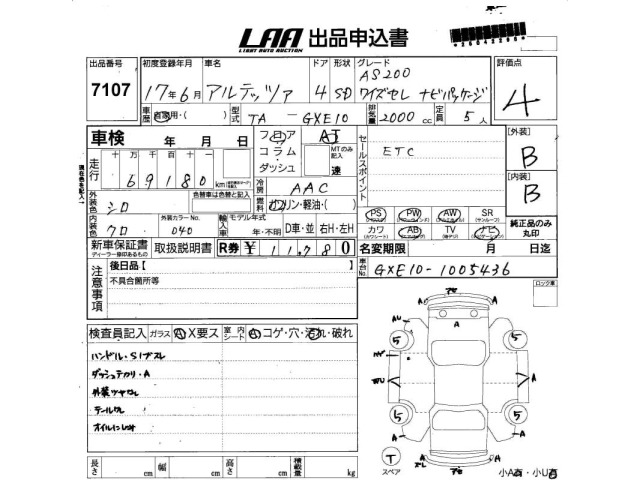 LAA 出品申込書
LIGHT AUTO AUCTION
出品番号 初度登録年月 車名 ドア 形状 グレード 評価点
7107 17年6月 アルテッツァ 4 SD AS200 ワイズセレ ナビパッケージ 4
車歴 自家用・( ) 型式 TA - GXE10 排気量 2000cc 定員 5人
車検 年 月 日 フロア コラム・ダッシュ AT MTのみ記入 速 セールスポイント ETC
【外装】 B
【内装】 B
走行 十万 万 千 百 十 一
69180 km
冷房 AAC
色替車は色替と記入 燃料 ガソリン・軽油・( )
外装色 シロ 外装カラーNo. 040 輸入車 モデル年式 年・不明 D車・並 右H・左H
内装色 クロ
PS PW AW SR (サンルーフ)
カワ (カワシート) AB TV ナビ
純正品のみ丸印
新車保証書 ディーラー捺印あるもの 取扱説明書 R券 ¥ 11780
名変期限 月 日迄
車台No. GXE10-1005436
ロック車
現在色を記入
注意事項 後日品【 】
不具合箇所等
検査員記入 ガラス A X要ス 室内シート A コゲ・穴・汚れ・破れ
ハンドル・SIブスレ
ダッシュテカリ・A
外装ツヤなし
テールワレ
オイルにじみ
長さ cm 幅 cm 高さ cm 積載量 kg
A A A
AU 5 5
A A
5 5
A A
T スペア
小A有・小U有